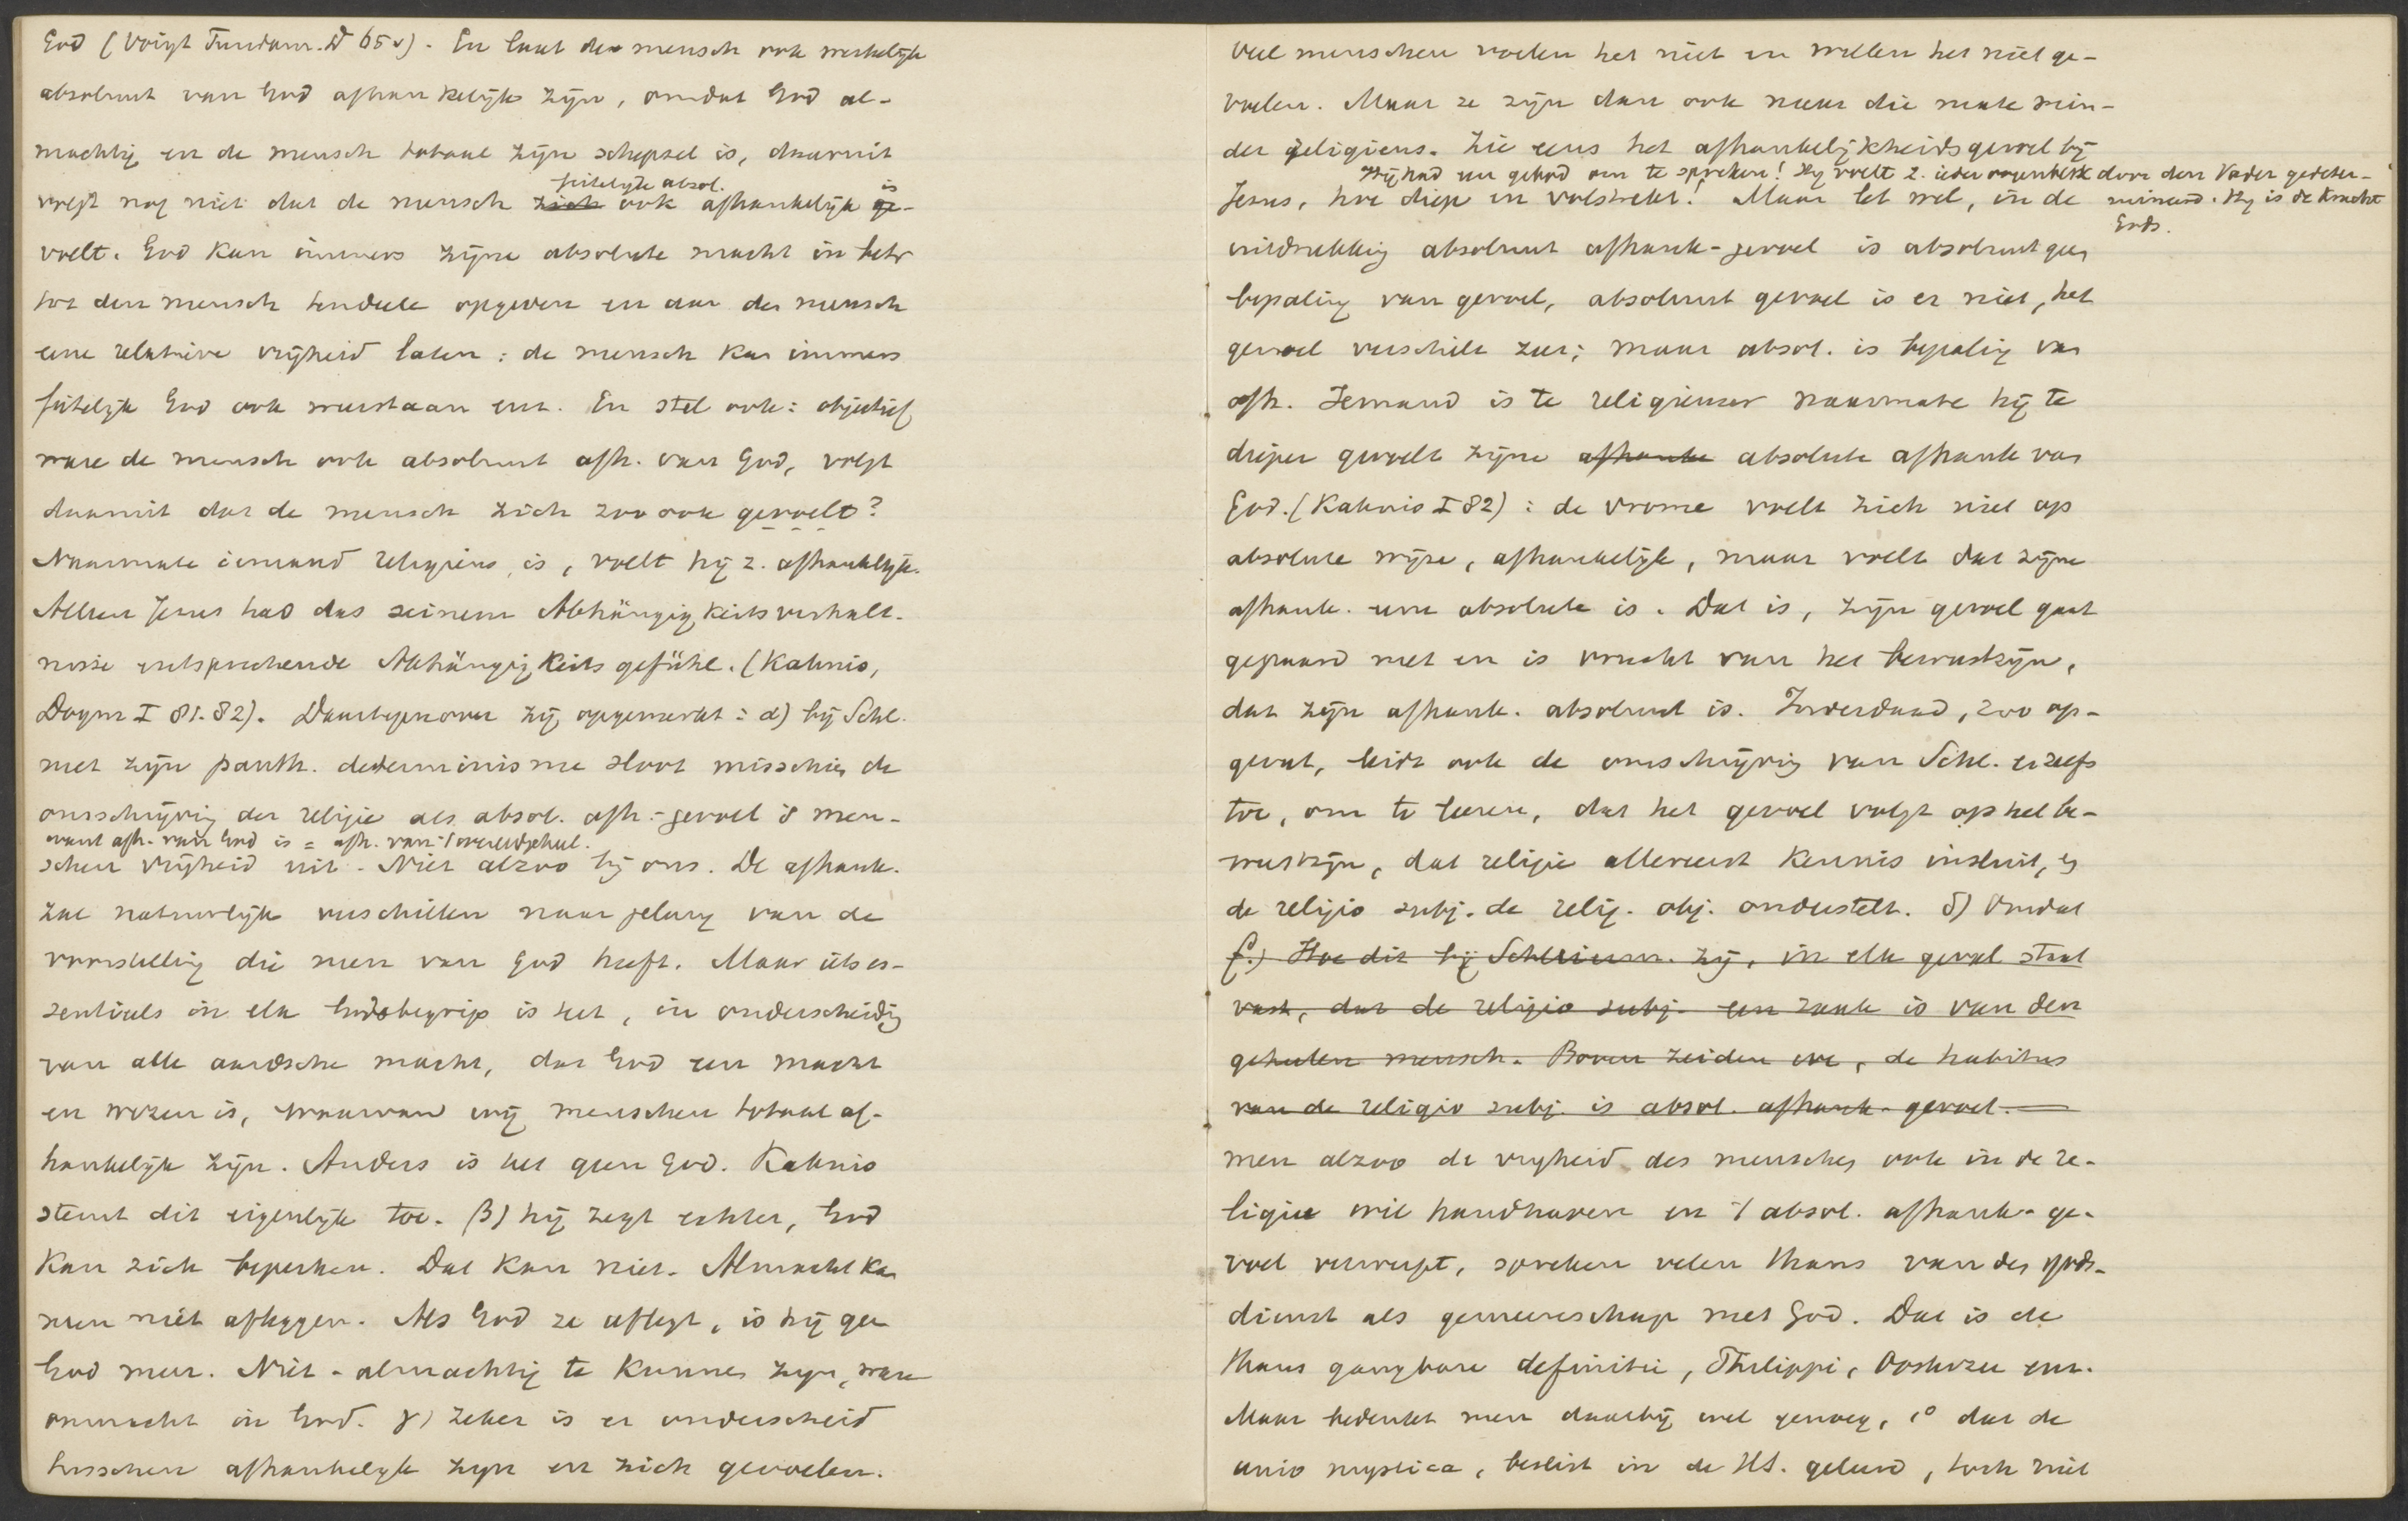 God (Voigt Fundam. D 65 v). En laat de mensch ook werkelijk
absoluut van God afhankelijk zijn, omdat God al-
machtig en de mensch totaal zijn schepsel is, daaruit
feitelijk absol. is
volgt nog niet dat de mensch zich ook afhankelijk ge-
voelt. God kan immers zijne absolute macht in betr
tot den mensch tendeele opgeven en aan den mensch
eene relatieve vrijheid laten: de mensch kan immers
feitelijk God ook weerstaan enz. En stel ook: objectief
ware de mensch ook absoluut afh. van God, volgt
daaruit dat de mensch zich zoo ook gevoelt?
Naarmate iemand religieus is, voelt hij z. afhankelijk.
Alleen Jesus had das seinem Abhängigkeitsverhält-
nisse entsprechende Abhängigkeitsgefühl. (Kahnis,
Dogm I 81.82). Daartegenover zij opgemerkt: α) bij Schl.
met zijn panth. determinisme sloot misschien de
omschrijving der religie als absol. afh.-gevoel d men-
want afh. van God is = afh. van 't wereldgeheel.
schen vrijheid uit. Niet alzoo bij ons. De afhank.
zal natuurlijk verschillen naar gelang van de
voorstelling die men van God heeft. Maar iets es-
sentieels in elk Godsbegrip is het, in onderscheiding
van alle aardsche macht, dat God een macht
en wezen is, waarvan wij menschen totaal af-
hankelijk zijn. Anders is het geen God. Kahnis
stemt dit eigenlijk toe. β) hij zegt echter, God
kan zich beperken. Dat kan niet. Almacht kan
men niet afleggen. Als God ze aflegt, is hij geen
God meer. Niet-almachtig te kunnen zijn, ware
onmacht in God. γ) zeker is er onderscheid
tusschen afhankelijk zijn en zich gevoelen.
Veel menschen voelen het niet en willen het niet ge-
voelen. Maar ze zijn dan ook naar die mate min-
der religieus. Zie eens het afhankelijkheidsgevoel bij
Hij had een gebod om te spreken! Hij voelt z. ieder oogenblik door den Vader gedeter-
Jesus, hoe diep en volstrekt! Maar let wel, in de
mineerd. Hij is de knecht
Gods.
uitdrukking absoluut afhank-gevoel is absoluut geen
bepaling van gevoel, absoluut gevoel is er niet, het
gevoel verschilt zeer; maar absol. is bepaling van
afh. Iemand is te religieuser naarmate hij te
dieper gevoelt zijne afhank absolute afhank van
God. (Kahnis I 82): de vrome voelt zich niet op
absolute wijze, afhankelijk, maar voelt dat zijne
afhank. eene absolute is. Dat is, zijn gevoel gaat
gepaard met en is vrucht van het bewustzijn,
dat zijn afhank. absoluut is. Inderdaad, zoo op-
gevat, leidt ook de omschrijving van Schl. er zelfs
toe, om te leeren, dat het gevoel volgt op het be-
wustzijn, dat religie allereerst kennis insluit, en
de religio subj. de relig. obj. onderstelt. δ) Omdat
f.) Hoe dit bij Schleierm. zij, in elk geval staat
vast, dat de religio subj. een zaak is van den
geheelen mensch. Boven zeiden we, de habitus
van de religio subj. is absol. afhank-gevoel.
men alzoo de vrijheid des menschen ook in de re-
ligie wil handhaven en 't absol. afhank-ge-
voel verwerpt, spreken velen thans van den gods-
dienst als gemeenschap met God. Dat is de
thans gangbare definitie, Philippi, Oosterzee enz.
Maar bedenkt men daarbij wel genoeg, 1° dat de
unio mystica, beslist in de HS. geleerd, toch niet